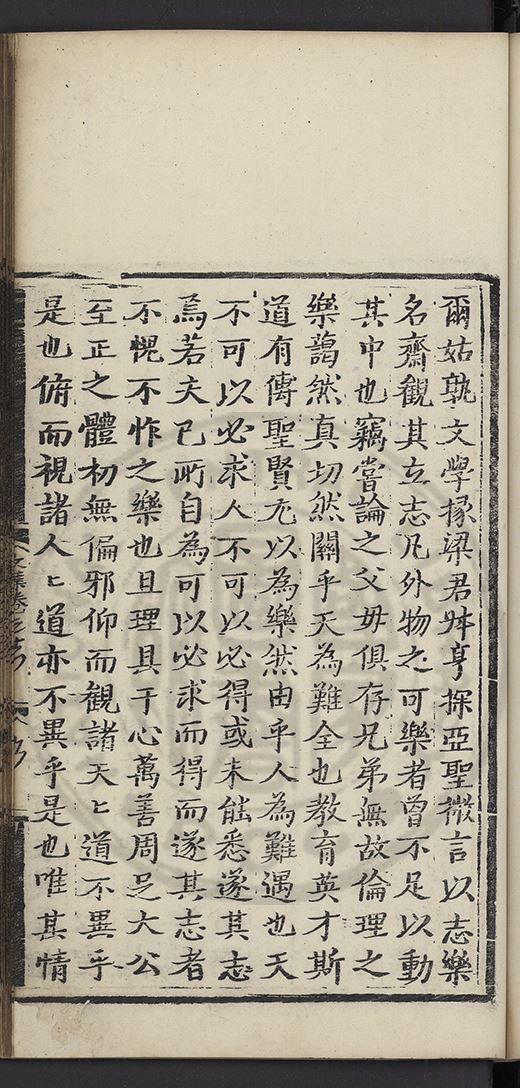 爾姑孰文學掾梁君舛亨探亞聖微言以志樂
名齋觀其立志凡外物之可樂者曾不足以動
其中也竊嘗論之父毋俱存兄弟無故倫理之
樂藹然真切然關乎天為難全也教育英才斯
道有傳聖賢尤以為樂然由乎人為難遇也天
不可以必求人不可以必得或未能悉遂其志
焉若夫已所自為可以必求而得而遂其志者
不愧不怍之樂也且理具于心萬善周足大公
至正之體初無偏邪仰而觀諸天〻道不異乎
是也俯而視諸人〻道亦不異乎是也唯其情
文集卷